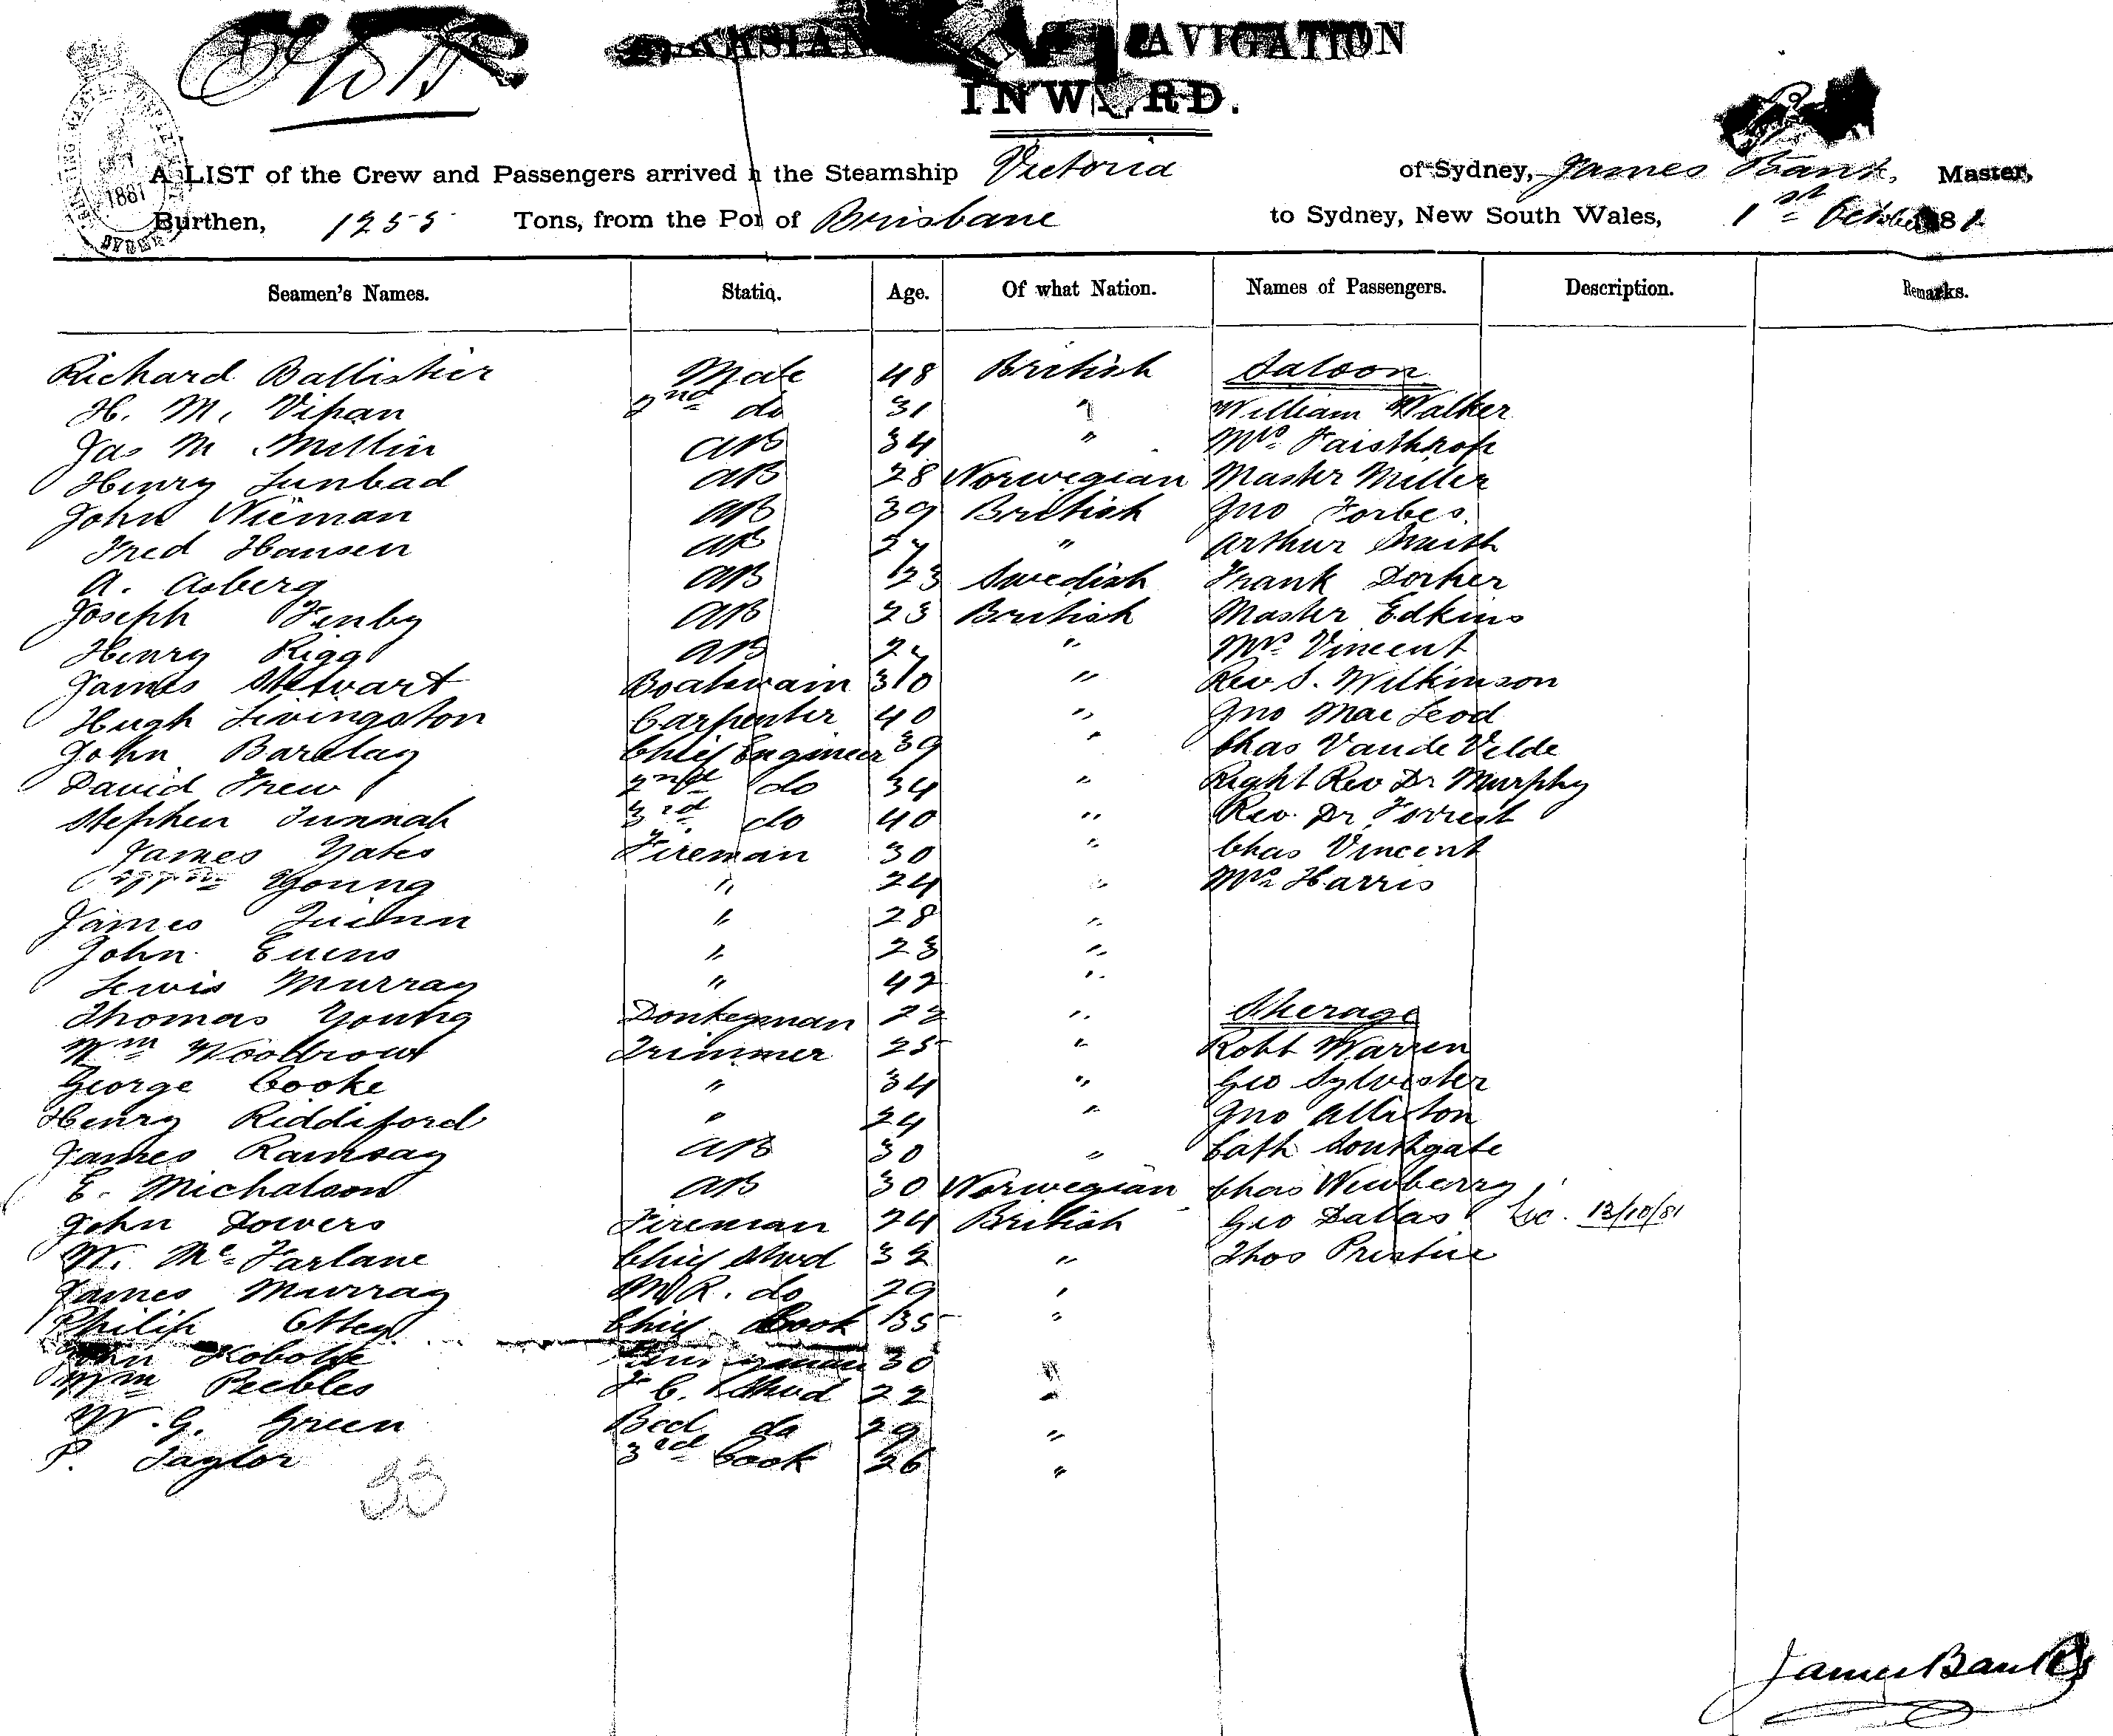 AVIGATION
INWARD.
1881
A LIST of the Crew and Passengers arrived the Steamship Victoria of Sydney, James Banks, Master,
Burthen, 1255 Tons, from the Por of Brisbane to Sydney, New South Wales, 1st October 81
Seamen's Names. Statio. Age. Of what Nation. Names of Passengers. Description. Remarks.
Richard Ballistier Mate 48 British Saloon
H. M. Vipan 2nd do 31 " William Walker
Jas M Millin AB 34 " Mrs Faisthrop
Henry Lunbad AB 28 Norwegian Master Miller
John Nieman AB 39 British Jno Forbes.
Fred Hansen AB " Arthur Smith
A. Asberg AB 23 Swedish Frank Dorher
Joseph Fenby AB 23 British Master Edkins
Henry Rigg AB " Mrs Vincent
James Stewart Boatswain 30 " Rev S. Wilkinson
Hugh Livingston Carpenter 40 " Jno MacLeod
John Barclay Chief Engineer 39 " Chas Van de Velde
David Frew 2nd do 34 " Right Rev Dr Murphy
Stephen Tunnah 3rd do 40 " Rev. Dr Forrest
James Yates Fireman 30 " Chas Vincent
Young " 24 " Mrs Harris
James Quinn " 28 "
John Euens " 23 "
Lewis Murray " 42 "
Thomas Young Donkeyman 23 " Steerage
Wm Woolbrow Trimmer 25 " Robt Warren
George Cooke " 34 " Geo Sylvester
Henry Riddiford " 24 " Jno Alliston
James Ramsay AB 30 " Cath Southgate
E. Michalson AB 30 Norwegian Chas Newberry
John Dowers Fireman 24 British Geo Dallas 13/10/81
W. McFarlane Chief Stwd 32 " Thos Prentice
James Murray M.R. do 29 "
Philip Ottey Chief Cook 35 "
John Kobolte 30 "
Wm Peebles F C. Stwd 22 "
W. G. Green Bed do 29 "
P. Taylor 3rd Cook 26 "
33
James Banks